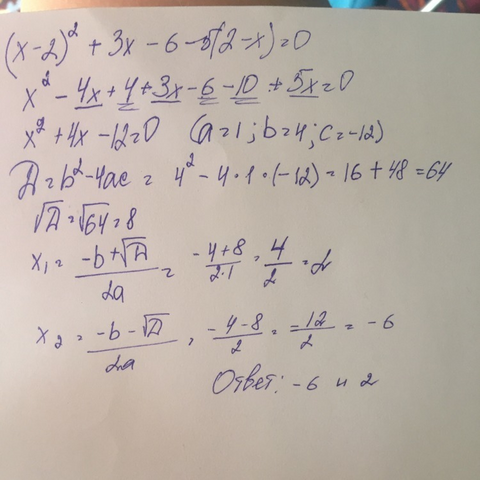 (x-2)² + 3x - 6 - 5(2-x)=0
x² - 4x + 4 + 3x - 6 - 10 + 5x = 0
x² + 4x - 12 = 0 (a=1; b=4; c=-12)
Д = b² - 4ac = 4² - 4·1·(-12) = 16 + 48 = 64
√Д = √64 = 8
x₁ = (-b+√Д)/2a = (-4+8)/2·1 = 4/2 = 2
x₂ = (-b-√Д)/2a = (-4-8)/2 = -12/2 = -6
Ответ: -6 и 2